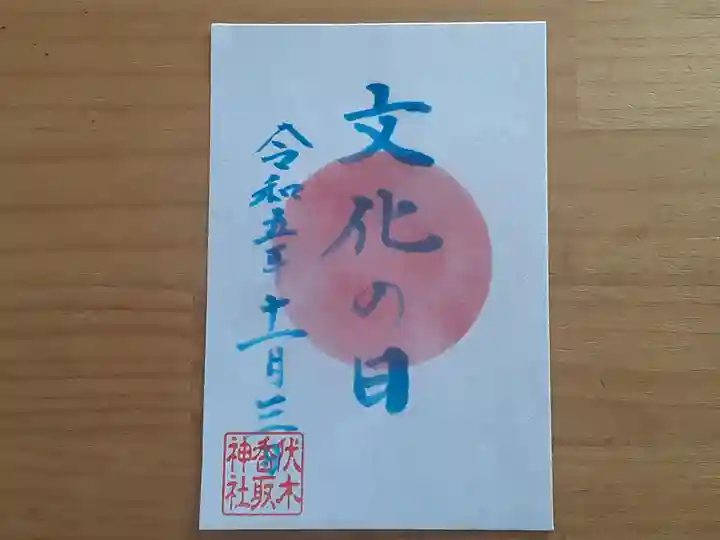 文化の日
令和五年十一月三日
伏木
香取
神社